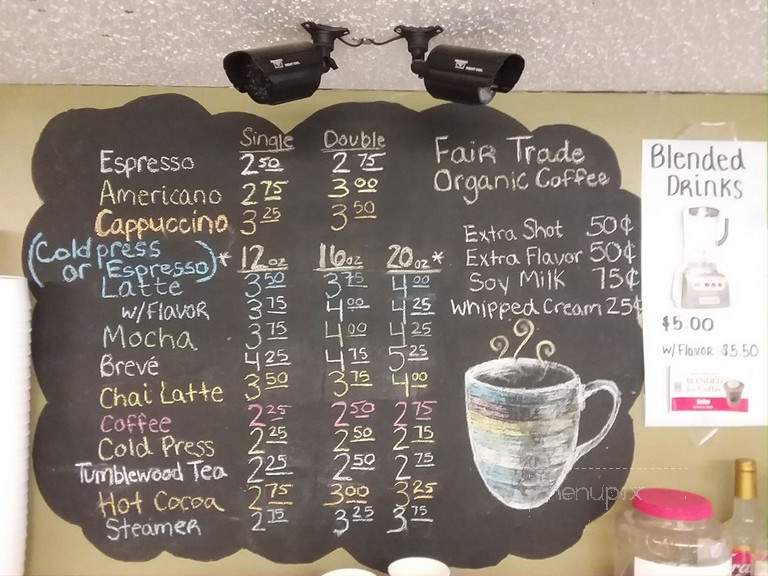 Single Double
Espresso 2 50 2 75
Americano 2 75 3 00
Cappuccino 3 25 3 50
(Cold press
or Espresso) * 12 oz 16 oz 20 oz *
Latte 3 50 3 75 4 00
w/FlavoR 3 75 4 00 4 25
Mocha 3 75 4 00 4 25
Brevé 4 25 4 75 5 25
Chai Latte 3 50 3 75 4 00
Coffee 2 25 2 50 2 75
Cold Press 2 25 2 50 2 75
Tumblewood Tea 2 25 2 50 2 75
Hot Cocoa 2 75 3 00 3 25
Steamer 2 75 3 25 3 75
FaiR Trade
Organic Coffee
Extra Shot 50¢
Extra Flavor 50¢
Soy Milk 75¢
Whipped Cream 25¢
menupix
Blended
DRiNKS
$5.00
w/FlavoR $5.50
BLENDED